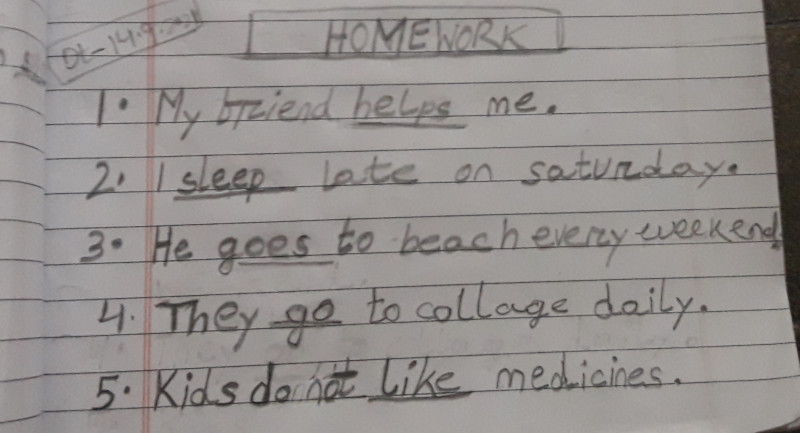 Dt-14.9.2021
HOMEWORK
1. My friend helps me.
2. I sleep late on saturday.
3. He goes to beach every weekend.
4. They go to collage daily.
5. Kids do not like medicines.